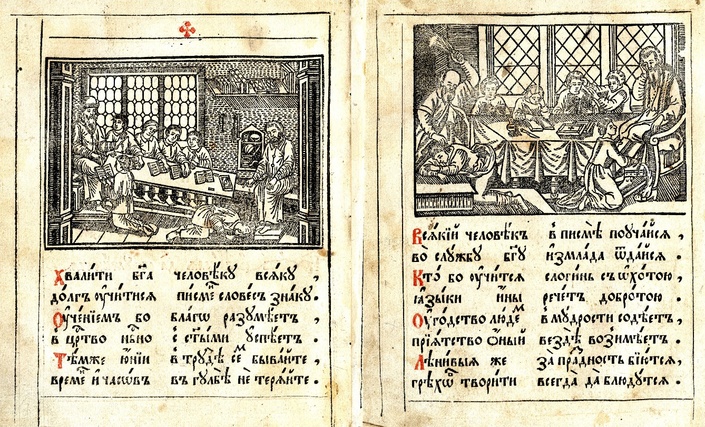 Хвали́ти бг҃а человѣ́ку всѧ́ку ,
до́лгъ ᲂу҆чи́тисѧ пи́смє словє́съ зна́ку .
Оу҆чє́нїємъ бо бл҃гѡ разꙋмѣ́єтъ ,
в цр҃тво нб҃но с ст҃ы́ми ᲂу҆спѣ́єтъ .
Тѣ́мжє ю҆́нїи в трꙋдѣ̀ сѐ быва́йтє ,
врє́мє и҆ часѡ́въ въ гꙋлбѣ̀ нє тєрѧ́йтє .
Всѧ́кїй человѣ́къ в писмѣ̀ поꙋча́йсѧ ,
во слꙋ́жбꙋ бг҃ꙋ и҆змла́да ѿда́йсѧ .
Кто́ бо ᲂу҆чи́тсѧ слоги́нь с ѡ҆хо́тою ,
ꙗ҆зы́ки и҆́ны рєчє́тъ добро́тою .
Оу҆го́дство лю́дє в мꙋ́дрости содѣ́єтъ ,
прїѧ́тство ѻ҆́ный вєздѣ̀ во́зимѣєтъ .
Лѣни́выѧ жє за пра́дность бїю́тсѧ ,
грѣхѡ́ твори́ти всєгда̀ да блюдꙋ́тсѧ .